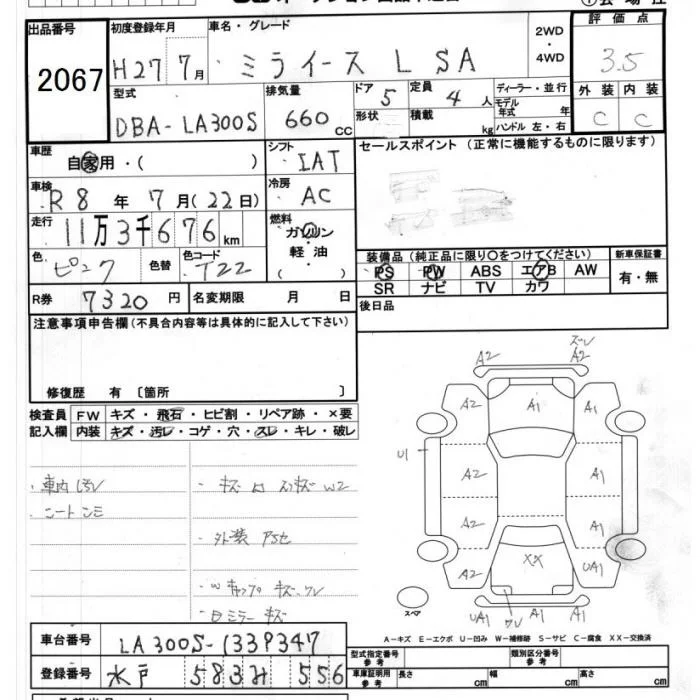 出品番号 2067
初度登録年月 H27 7月
車名・グレード ミライース L SA
2WD・4WD
評価点 3.5
型式 DBA-LA300S
排気量 660 cc
ドア 5
形状
定員 4人
積載 kg
ディーラー・並行
モデル年式 年
ハンドル 左・右
外装 C
内装 C
車歴 自家用・( )
シフト IAT
セールスポイント (正常に機能するものに限ります)
車検 R8年 7月(22日)
冷房 AC
走行 11万3千676km
燃料 ガソリン 軽油 ( )
色 ピンク
色替
色コード T22
装備品 (純正品に限り〇をつけてください)
PS PW ABS エアB AW
SR ナビ TV カワ
新車保証書 有・無
R券 7320円
名変期限 月 日
後日品
注意事項申告欄(不具合内容等は具体的に記入して下さい)
修復歴 有 〔箇所 〕
検査員 FW キズ・飛石・ヒビ割・リペア跡・×要
記入欄 内装 キズ・汚レ・コゲ・穴・スレ・キレ・破レ
・車内汚レ
・外装 アセ
・ミラー キズ
ズレ
A2 A2
A2 A1 A1
U1
A2 A1
A2 A1
A2 XX UA1
ワレ
UA1 A1 A1
スペア
A-キズ E-エクボ U-凹み W-補修跡 S-サビ C-腐食 XX-交換済
車台番号 LA300S-1339347
登録番号 水戸 583 み 556
型式指定番号 参考
類別区分番号 参考
車庫証明用 参考 長さ cm 幅 cm 高さ cm